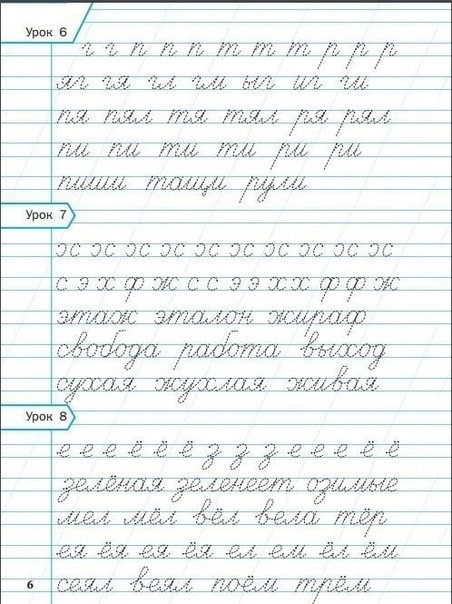 Урок 6
г г п п п т т т р р р
яг гя гл гм ыг иг ги
пя пял тя тял ря рял
пи пи ти ти ри ри
пиши тащи рули
Урок 7
эс эс эс эс эс эс эс эс эс эс
с э х ф ж с с э э х х ф ф ж
этаж эталон жираф
свобода работа выход
сухая жухлая живая
Урок 8
е е е ё ё ё з з з е е е ё ё
зелёная зеленеет озимые
мел мёл вёл вела тёр
ея ёя ея ёя ел ем ёл ём
сеял веял поём трём
6